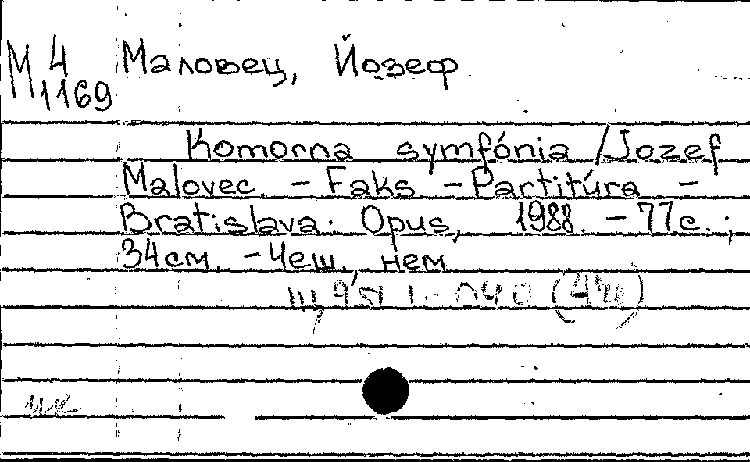 М 4
1169
Маловец, Йозеф
Komorna symfónia / Jozef
Malovec. - Faks. - Partitúra. -
Bratislava: Opus, 1988. - 77 с.;
34 см. - Чеш., нем